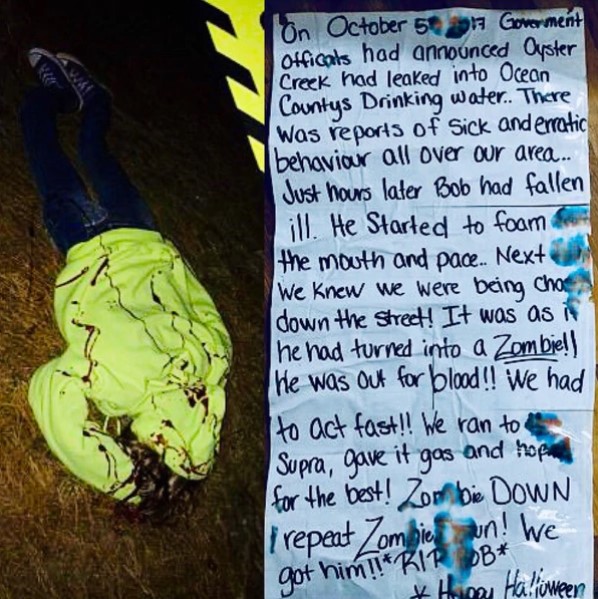 On October 5 17 Goverment
officals had announced Oyster
Creek had leaked into Ocean
Countys Drinking water.. There
was reports of sick and erratic
behaviour all over our area..
Just hours later Bob had fallen
ill. He Started to foam
the mouth and pace.. Next
We knew we were being cha
down the street! It was as i
he had turned into a Zombie!!
He was out for blood!! We had
to act fast!! We ran to
Supra, gave it gas and hop
for the best! Zombie DOWN
I repeat Zombie un! We
got him!! *RIP OB*
* Happy Halloween